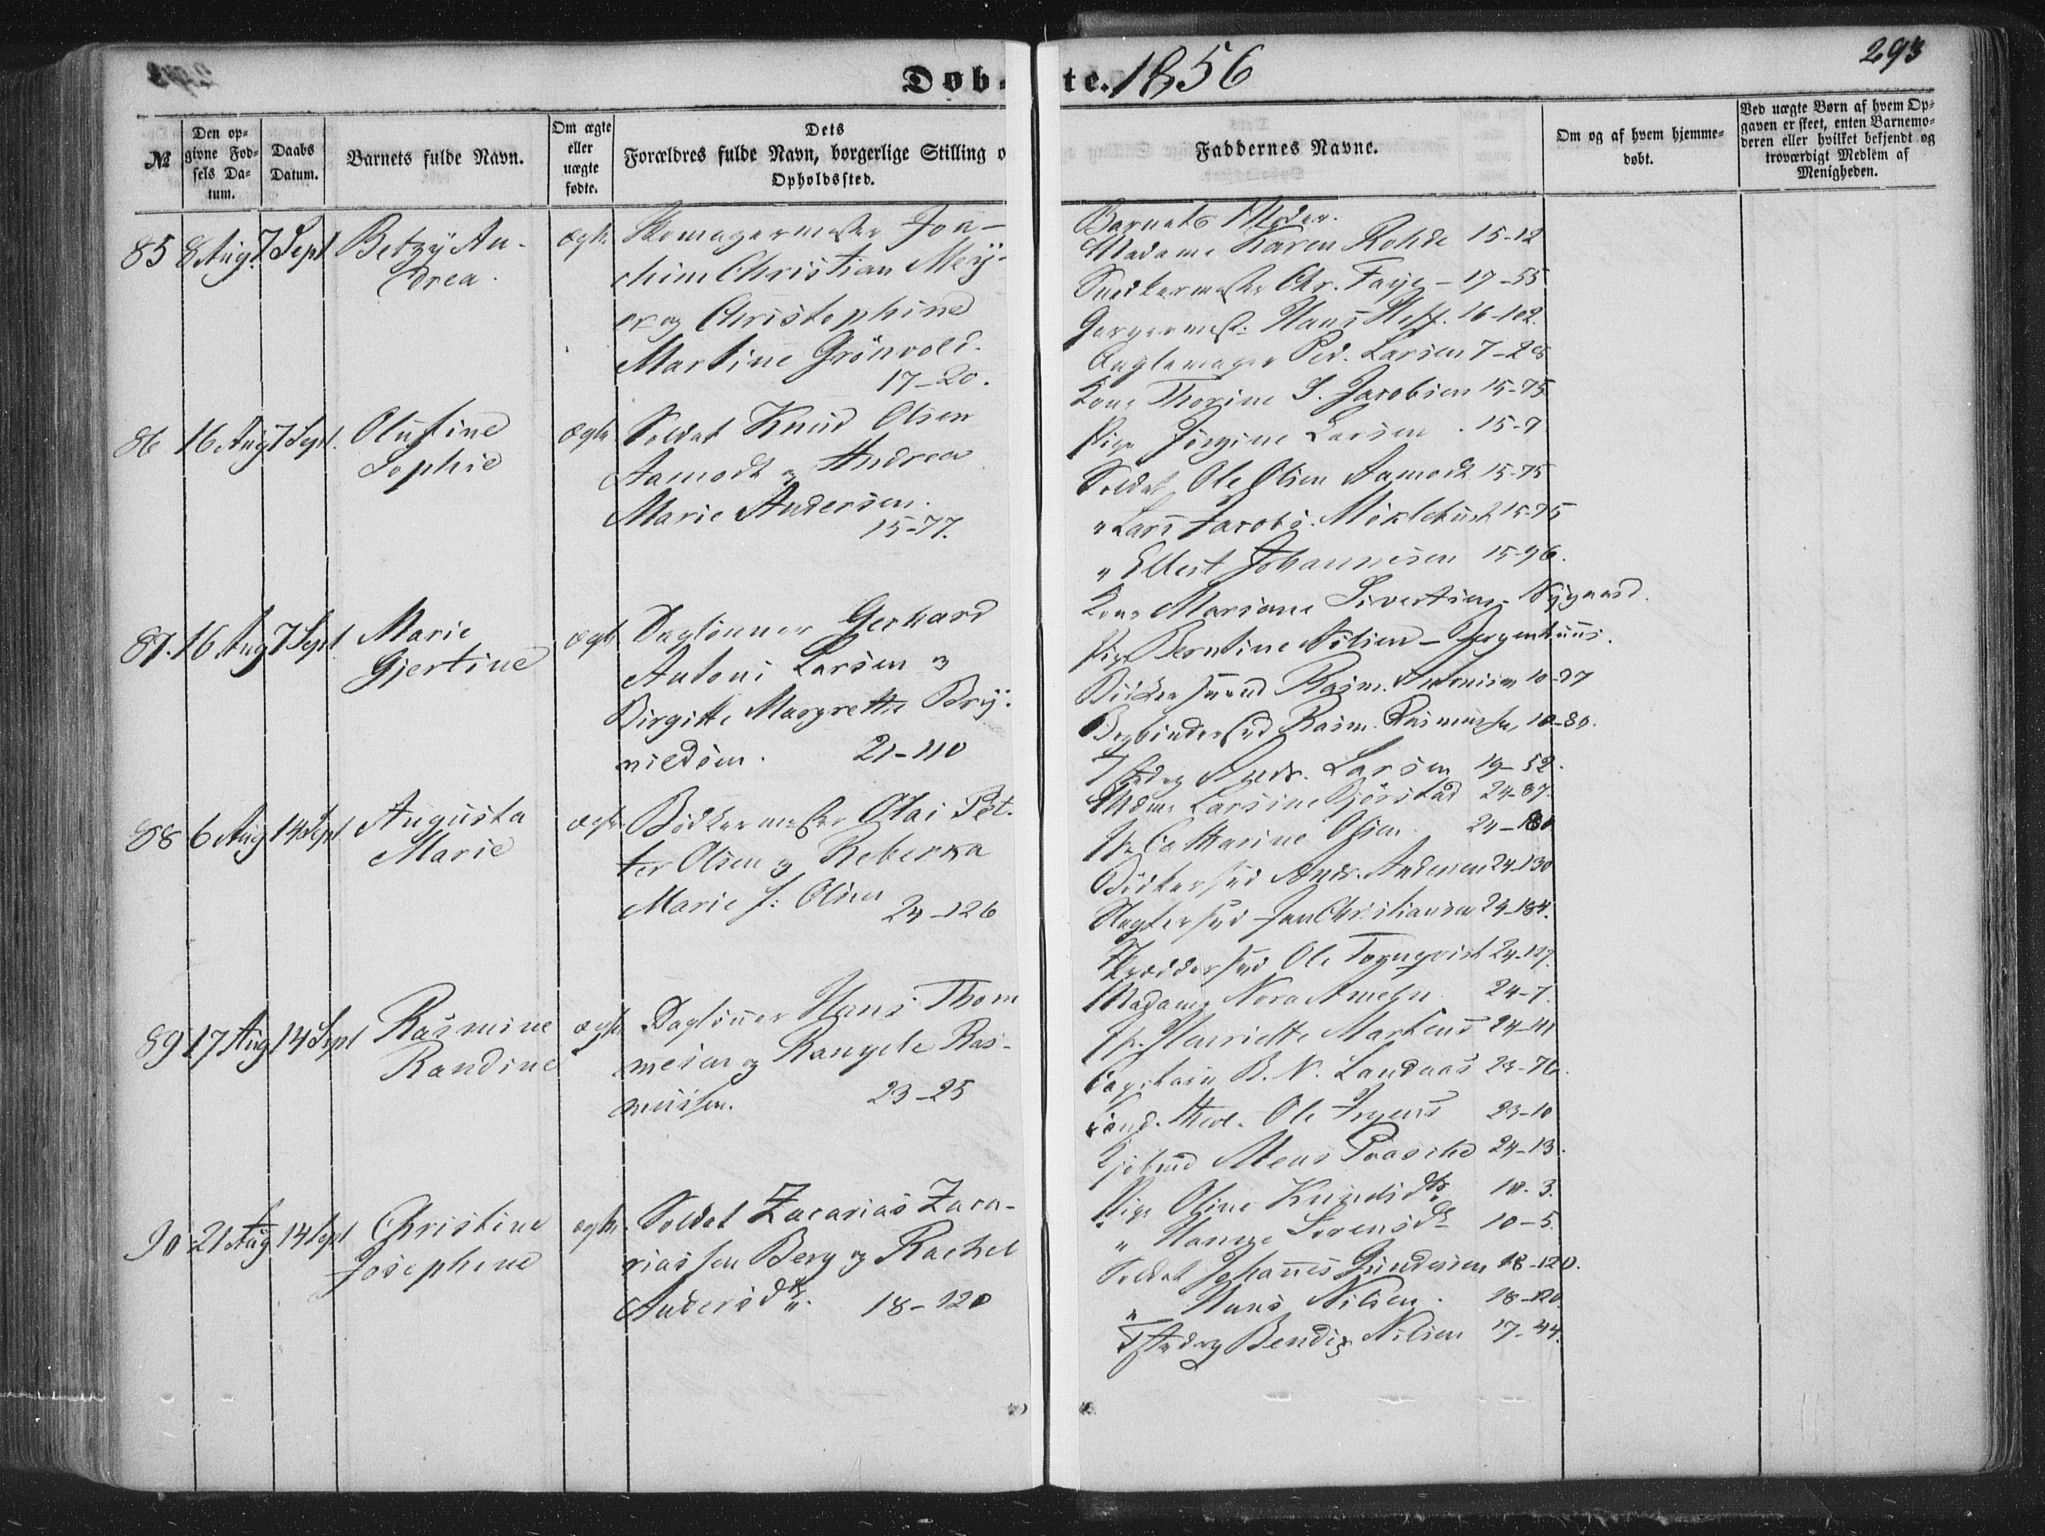 Døbte. 1856
293
№
Den opgivne Fødsels Datum.
Daabs Datum.
Barnets fulde Navn.
Om ægte eller uægte fødte.
Dets Forældres fulde Navn, borgerlige Stilling o
Opholdssted.
Faddernes Navne.
Om og af hvem hjemmedøbt.
Ved uægte Børn af hvem Opgaven er skeet, enten Barnemoderen eller hvilket bekjendt og troværdigt Medlem af Menigheden.
85 8 Aug. 7 Sept Betzy An-
drea.
ægte
Skomagermester Joa-
chim Christian Mey-
er og Christophine
Martine Grönvold.
17-20.
Barnets Moder.
Madame Karen Rohde 15-12
Snedkermester Chr. Faye - 17-55
Garvermest: Hans 16-102.
Ped. Larsen 7-28
Kone Thorine S. Jacobsen 15-75
86 16 Aug 7 Sept. Olufine
Sophie
ægte
Soldat Knud Olsen
Aamodt og Andrea
Marie Andersen.
15-77.
Pige Jörgine Larsen . 15-9
Soldat Ole Olsen Aamodt 15-75
" Lars Jacobs. Möklebust 15-75
" Ellert Johannesen 15-96.
87. 16 Aug 7 Sept Marie
Gjertine
ægte
Daglönner Gerhard
Antoni Larsen og
Birgitte Margrethe Bry-
nieldsen. 21-110
Kone Mariane Sivertsen Nygaard.
Pige Berntine Nilsen - Bergenhuus.
Bödkersvend Rasm. 10-37
Bogbindersvd Rasm. Rasmussen 10-80.
Andr. Larsen 19-52.
88 6 Aug 14 Sept Augusta
Marie
ægte
Bödkermester Olai Pet-
ter Olsen og Rebekka
Marie f: Olsen
24-126
Mdme Larsine Bjørstad 24-37
Catharine Olsen 24-130
Bödkersvd Andr. Andersen 24-130
Slagtersvd Jan Christiansen 24-184.
Skræddersvd Ole Tornqvist 24-127.
89 17 Aug 14 Sept Rasmine
Randine
ægte
Daglönner Hans Thom
mesen og Rangele Ras-
mussen. 23-25
Madame Nora Ameln 24-7.
Henriette Martens 24-41
Capitain B. N. Landaas 23-76.
Cand. theol. Ole Irgens 23-10
Mens Prasche 24-13.
90 21 Aug 14 Sept Christine
Josephine
ægte
Soldat Zacarias Zaca-
riassen Berg og Rachel
Andersdtr. 18-120
Pige Oline Knudsdtr 18-3.
" Hanne Sørensdtr 10-5.
Soldat Johannes Gundersen 18-120.
" Hans Nilsen. 18-120.
Bendix Nilsen 17-44.